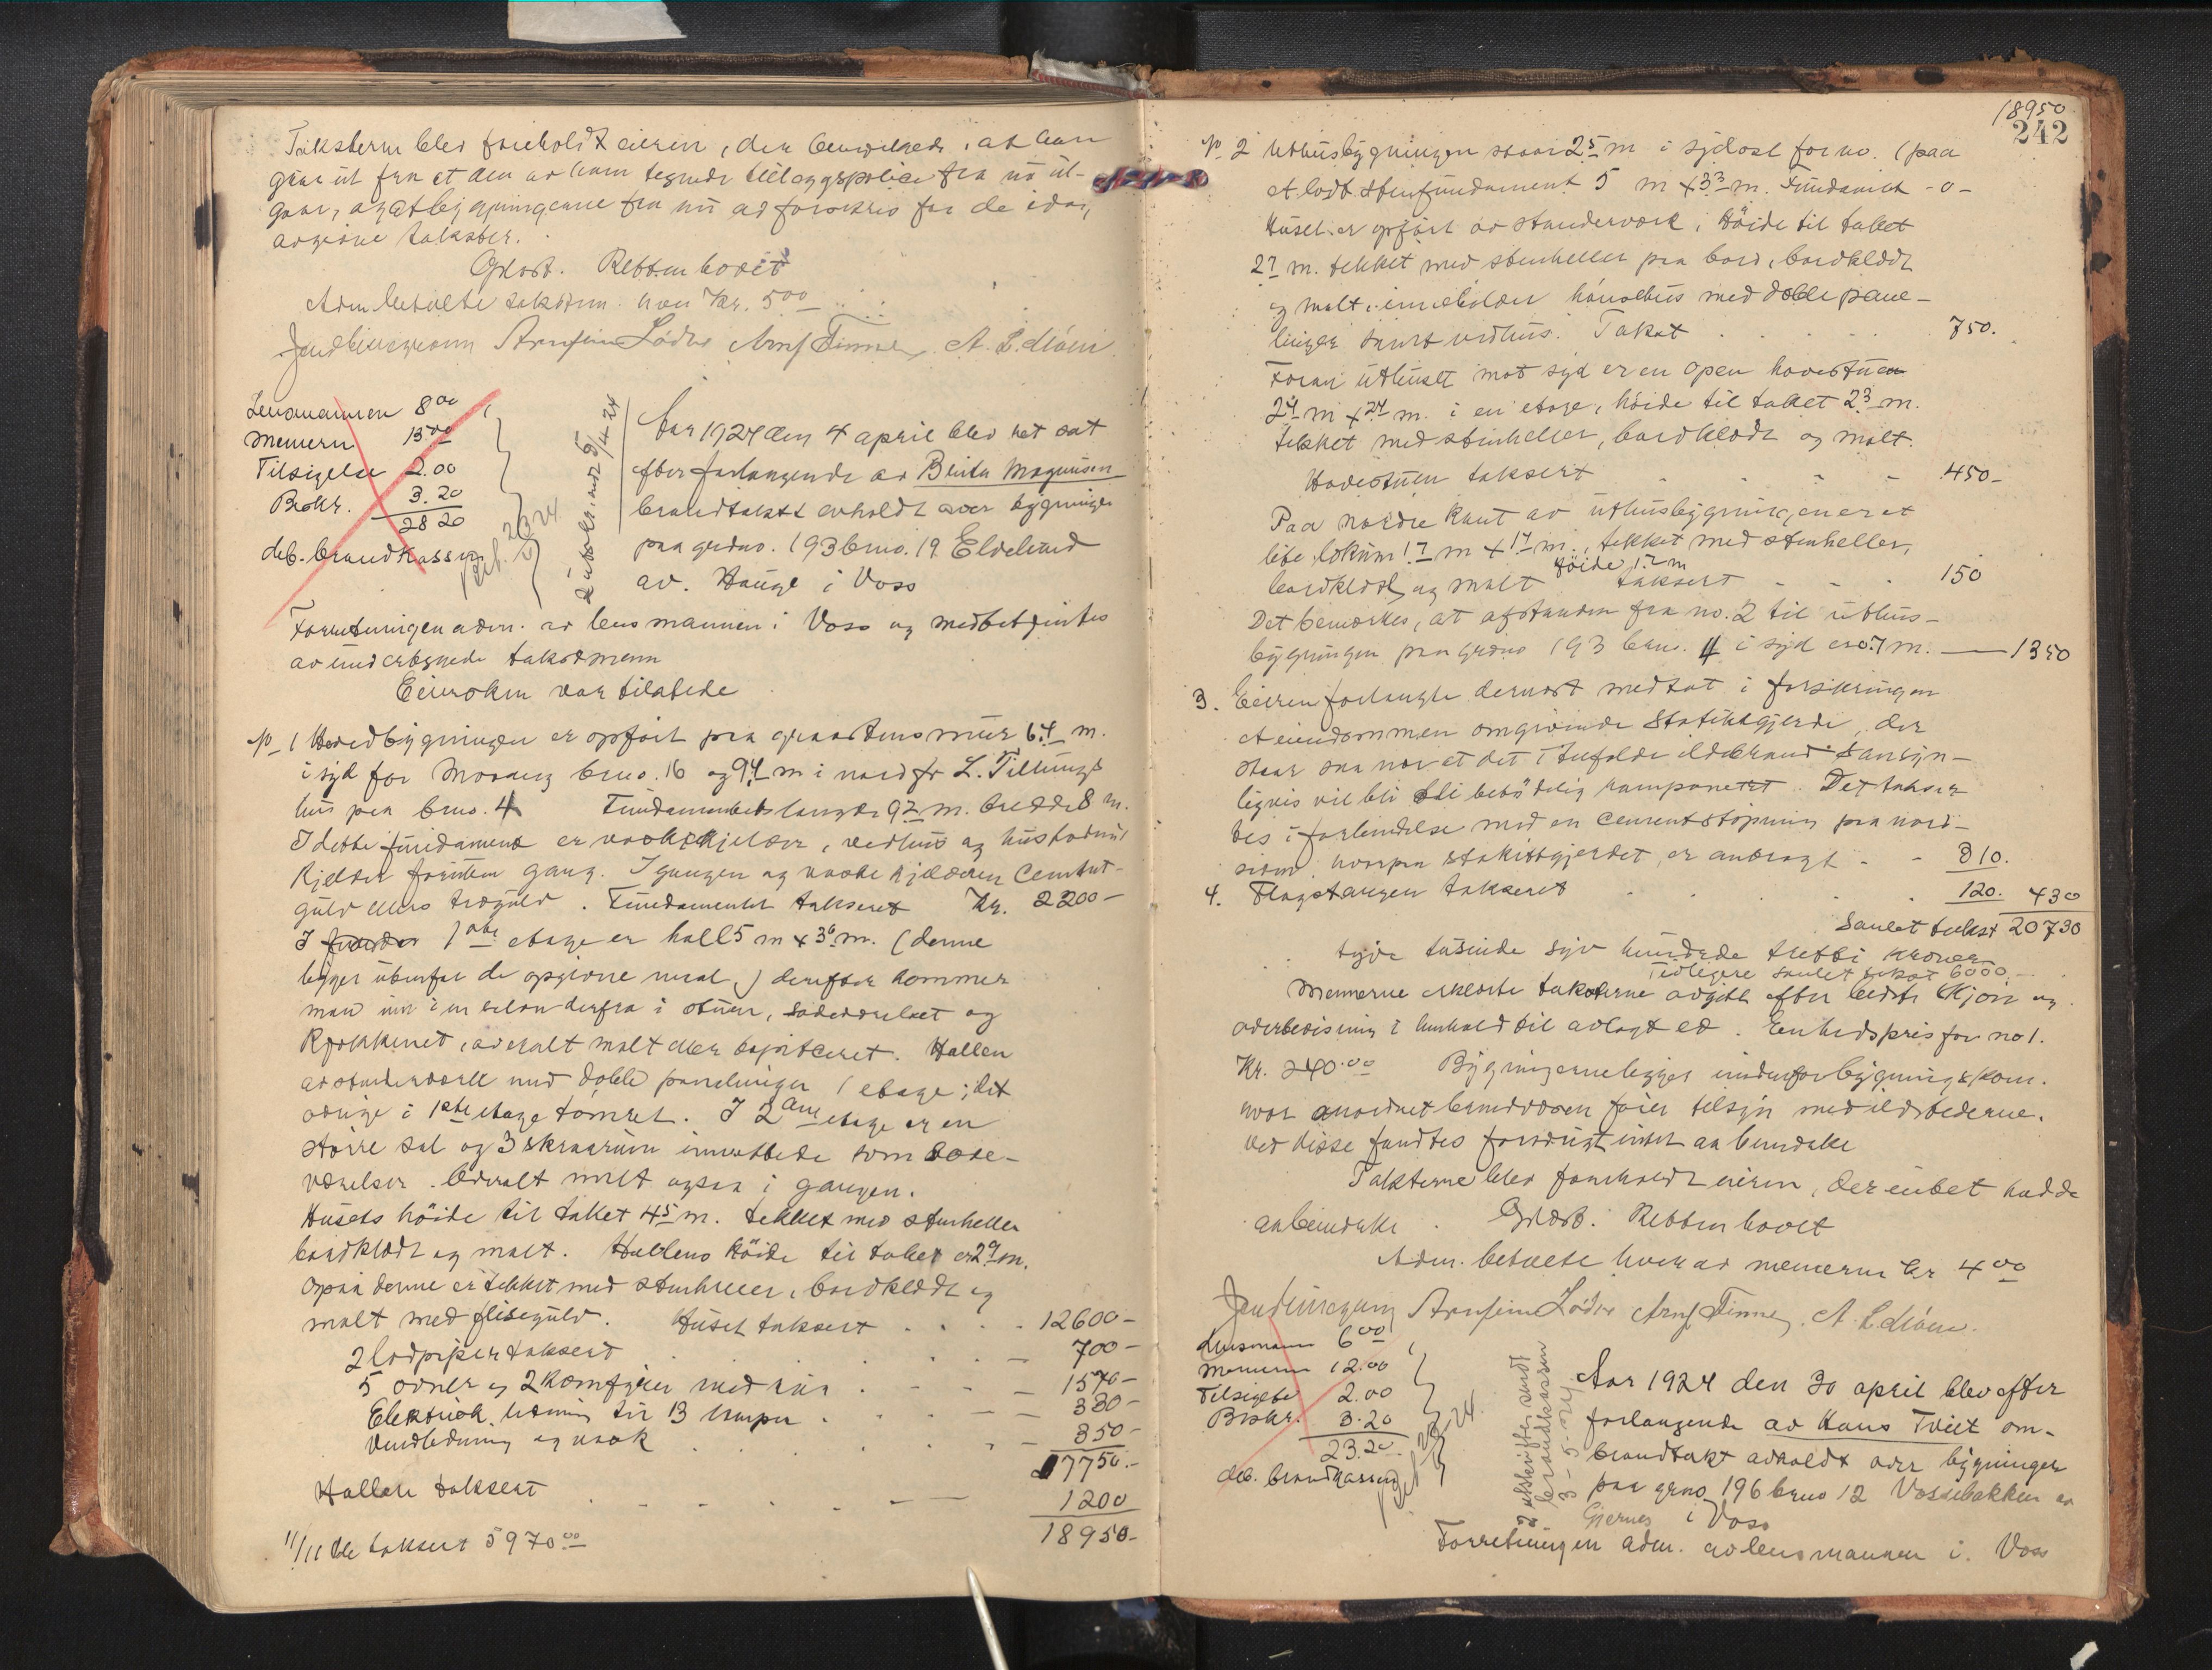 Taksterne blev foreholdt eieren, der bemerkede, at han
gaar ut fra at den av ham tegnede tillægspolice fra nu ut-
gaar, og at bygningerne fra nu av forsikres for de idag
avgivne takster.
Oplæst. Retten hævet
Adm. betalte takstm. hver Kr. 5 00
Arnfinn Arnf Finne A. L.
Lensmannen 8 00
Mennerne 15 00
Tilsigelse 2.00
Beskr. 3.20
28 20
deb. brandkassen
2 utskr. avs 5/4 24
Aar 1924 den 4 april blev ret sat
efter forlangende av Brita Magnusen
brandtakst avholdt over bygninger
paa grdno. 193 brno. 19 Eldelund
av Hauge i Voss
Forretningen adm. av lensmannen i Voss og medbetjentes
av undertegnede takstmenn
Eiersken var tilstede
No 1 Hovedbygningen er opført paa graastensmur 6.4 m.
i syd for brno. 16 og 9 4 m i nord for L. Tillungs
hus paa brno. 4 Fundamentets længde 9 2 m. bredde 8 m.
I dette fundament er vaskekjelder, vedhus og husholdnings
kjelder foruten gang. I gangen og vaskekjelderen cement-
gulv ellers trægulv. Fundamentet takseret Kr. 2200-
I 1ste etage er hall 5 m x 3 6 m. (denne
ligger utenfor de opgivne maal,) derefter kommer
man inn i en derfra i stuen, soveværelset og
kjøkkenet, overalt malt eller tapetceret. Hallen
av stenderverk med doble panelinger 1 etage; det
øvrige i 1ste etage tømret. I 2den etage er en
større sal og 3 skraarum innredede som sove-
værelser. Overalt malt ogsaa i gangen.
Husets höide til taket 4 5 m. tekket med stenheller
bordklædt og malt. Hallens höide til taket er 2 9 m.
Ogsaa denne er tekket med stenheller, bordklædt og
malt med flisegulv. Huset taksert 12600-
2 lodpiper taksert 700-
5 ovner og 2 komfyrer med rør 1570-
Elektrisk ledning til 13 lamper 330-
Vandledning og vask 350-
17750.-
Hallen taksert 1200
18950-
11/11 ble taksert 5970 00
18950
242
No 2 Uthusbygningen staar 2 5 m i sydost for no. 1 paa
et lødt stenfundament 5 m x 3 3 m. Fundament -o-
Huset er opført av stenderverk, höide til taket
2 7 m. tekket med stenheller paa bord, bordklædt
og malt, inneholder hönsehus med doble pane-
linger samt vedhus. Takst 750.
Foran uthuset mot syd er en open havestue
2 4 m x 2 4 m. i en etage, höide til taket 2 3 m.
tekket med stenheller, bordklædt og malt.
Havestuen taksert 450-
Paa nordre kant av uthusbygningen er et
lite lokum 1 7 m x 1 7 m., tekket med stenheller,
bordklædt og malt höide 1.2 m taksert 150
Det bemerkes, at afstanden fra no. 2 til uthus-
bygningen paa grdno 193 brno. 4 i syd er 0.7 m. 1350
3. Eieren forlangte dernæst medtat i forsikringen
et eiendommen omgivende stakitgjerde, der
staar saa nær at det i tilfælde ildebrand sansyn-
ligvis vil bli betydelig ramponert. Det takser
tes i forbindelse med en cementstøpning paa nord-
siden hvorpaa stakitgjerdet er anbragt 310.
4. Flagstangen takseret 120. 430
Samlet takst 20730
tyve tusinde syv hundrede tretti kroner
Tidligere samlet takst 6000.-
Mennerne erklærte taksterne avgitt efter bedste skjøn og
overbevisning i henhold til avlagt ed. Enhedspris for no 1.
Kr. 240.00 Bygningerne ligger indenfor bygningskom.
hvor anordnet brandvæsen fører tilsyn med ildstederne.
Ved disse fandtes forøvrig intet aa bemerke
Taksterne blev foreholdt eieren, der intet hadde
aa bemerke. Oplæst. Retten hævet
Adm. betalte hver av mennerne kr 4 00
Arnfinn Arnf Finne. A. L.
Lensmann 6 00
Mennerne 12.00
Tilsigelse 2.00
Beskr. 3.20
23.20
deb. brandkassen
2 utskrifter sendt
brandkassen
3-5-24.
Aar 1924 den 30 april blev efter
forlangende av Hans Tveit om-
brandtakst avholdt over bygninger
paa grno 196 brno 12 Vossebakken av
Gjernes i Voss
Forretningen adm. av lensmannen i Voss